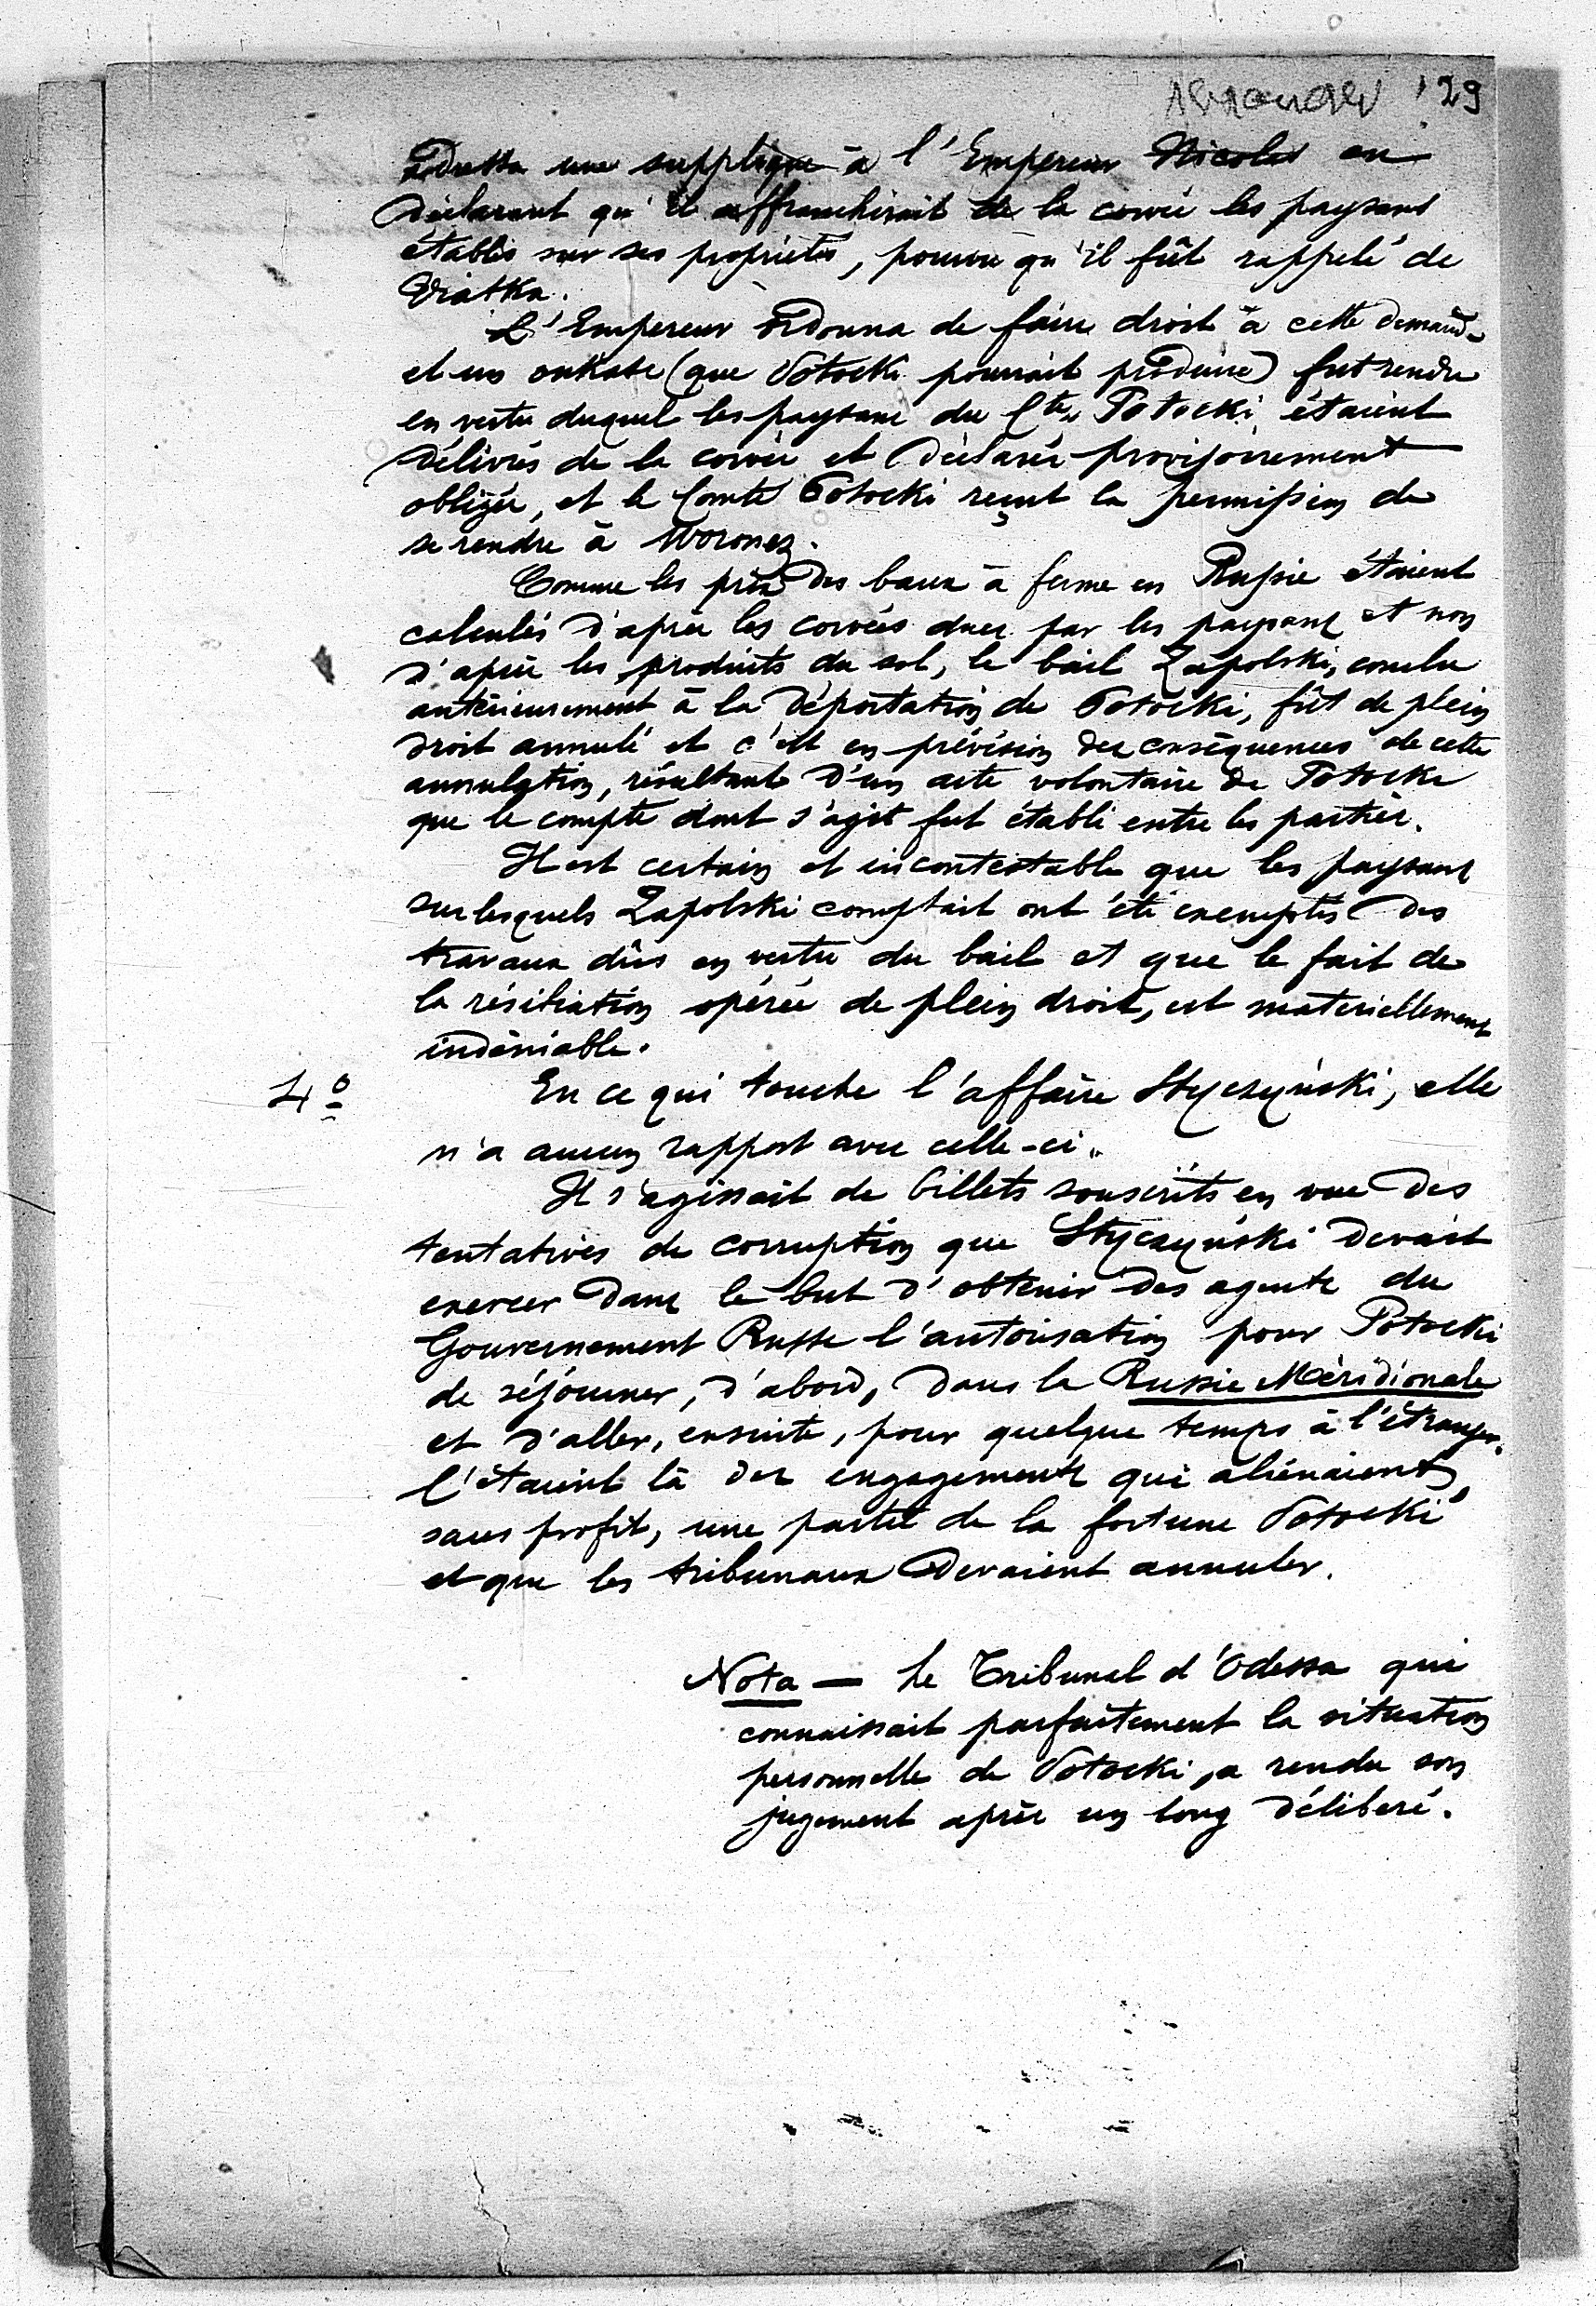 29
adressa une supplique à l'Empereur Nicolas en
déclarant qu'il affranchirait de la corvée les paysans
établis sur ses propriétés, pourvu qu'il fût rappelé de
Viatka.
L'Empereur ordonna de faire droit à cette demande
et un oukase (que Potocki pourrait produire) fut rendu
en vertu duquel les paysans du Cte Potocki étaient
délivrés de la corvée et déclarés provisoirement
obligés, et le Comte Potocki reçut la permission de
se rendre à Woronez.
Comme les prix des baux à ferme en Russie étaient
calculés d'après les corvées dues par les paysans et non
d'après les produits du sol, le bail Zapolski, conclu
antérieurement à la déportation de Potocki, fût de plein
droit annulé et c'est en prévision des conséquences de cette
annulation, résultant d'un acte volontaire de Potocki
que le compte dont s'agit fut établi entre les parties.
Il est certain et incontestable que les paysans
sur lesquels Zapolski comptait ont été exemptés des
travaux dûs en vertu du bail et que le fait de
la résiliation opérée de plein droit, est materiellement
indéniable.
4º
En ce qui touche l'affaire Styczyński, elle
n'a aucun rapport avec celle-ci.
Il s'agissait de billets souscrits en vue des
tentatives de corruption que Styczyński devait
exercer dans le but d'obtenir des agents du
Gouvernement Russe l'autorisation pour Potocki
de séjourner, d'abord, dans la Russie Méridionale
et d'aller, ensuite, pour quelque temps à l'étranger.
C'étaient là des engagements qui aliénaient,
sans profit, une partie de la fortune Potocki
et que les tribunaux devaient annuler.
Nota — Le Tribunal d'Odessa qui
connaissait parfaitement la situation
personnelle de Potocki, a rendu son
jugement après un long délibéré.